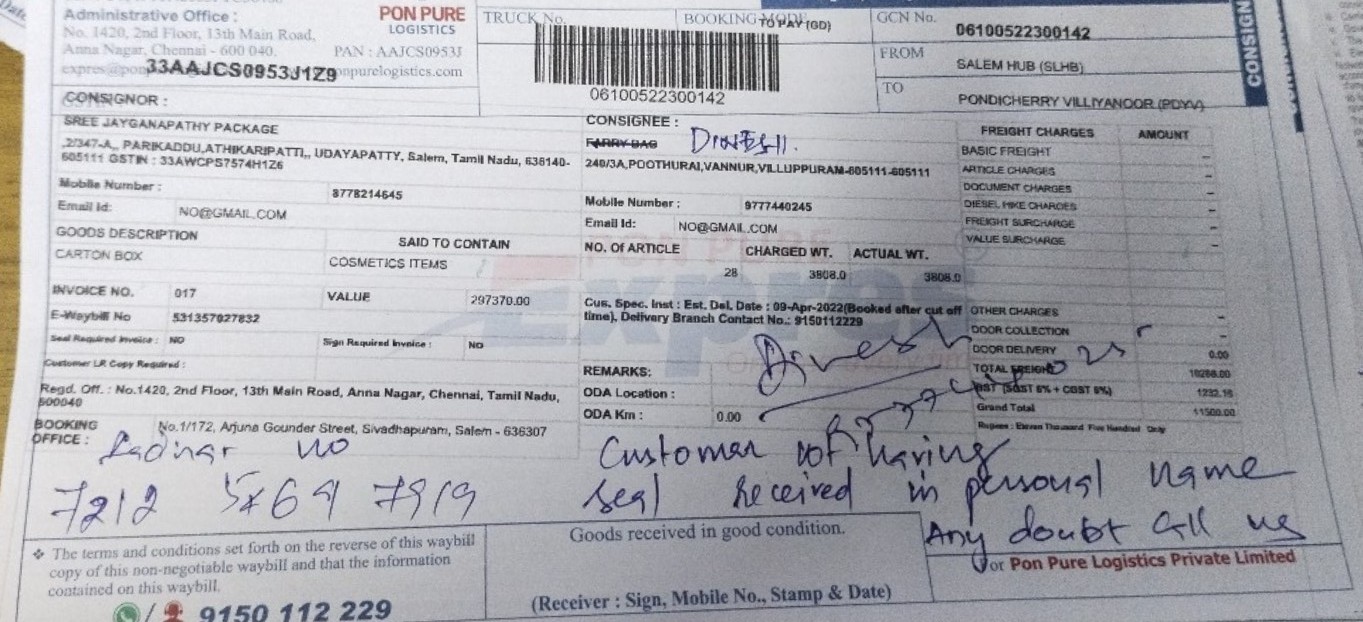 Administrative Office :
No. 1420, 2nd Floor, 13th Main Road,
Anna Nagar, Chennai - 600 040.
PON PURE
LOGISTICS
PAN : AAJCS0953J
33AAJCS0953J1Z9
TRUCK No.
BOOKING MODE
TO PAY (GD)
06100522300142
GCN No.
06100522300142
FROM
SALEM HUB (SLHB)
TO
PONDICHERRY VILLIYANOOR (PDYV)
CONSIGN
CONSIGNOR :
SREE JAYGANAPATHY PACKAGE
,2/347-A,, PARIKADDU,ATHIKARIPATTI,, UDAYAPATTY, Salem, Tamil Nadu, 636140-
605111 GSTIN : 33AWCPS7574H1Z6
Mobile Number :
8778214645
Email Id:
NO@GMAIL.COM
CONSIGNEE :
FARRY BAG
DINESH.
240/3A,POOTHURAI,VANNUR,VILLUPPURAM-605111-605111
Mobile Number :
9777440245
Email Id:
NO@GMAIL.COM
GOODS DESCRIPTION
SAID TO CONTAIN
CARTON BOX
COSMETICS ITEMS
NO. Of ARTICLE
CHARGED WT.
ACTUAL WT.
28
3808.0
3808.0
INVOICE NO.
017
VALUE
297370.00
E-Waybill No
531357027832
Seal Required Invoice :
NO
Sign Required Invoice :
NO
Customer LR Copy Required :
Cus. Spec. Inst : Est. Del. Date : 09-Apr-2022(Booked after cut off
time), Delivery Branch Contact No.: 9150112229
PON PURE
Expres
Dinesh
REMARKS:
ODA Location :
ODA Km :
0.00
FREIGHT CHARGES
AMOUNT
BASIC FREIGHT
-
ARTICLE CHARGES
-
DOCUMENT CHARGES
-
DIESEL HIKE CHARGES
-
FREIGHT SURCHARGE
-
VALUE SURCHARGE
-
OTHER CHARGES
-
DOOR COLLECTION
-
DOOR DELIVERY
0.00
TOTAL FREIGHT
10268.00
GST (SGST 6% + CGST 6%)
1232.16
Grand Total
11500.00
Rupees : Eleven Thousand Five Hundred Only
Regd. Off. : No.1420, 2nd Floor, 13th Main Road, Anna Nagar, Chennai, Tamil Nadu,
600040
BOOKING
OFFICE :
No.1/172, Arjuna Gounder Street, Sivadhapuram, Salem - 636307
no
7212 5469 7919
Customer not having
seal Received in personal name
Any doubt call us
❖ The terms and conditions set forth on the reverse of this waybill
copy of this non-negotiable waybill and that the information
contained on this waybill.
9150 112 229
Goods received in good condition.
(Receiver : Sign, Mobile No., Stamp & Date)
For Pon Pure Logistics Private Limited